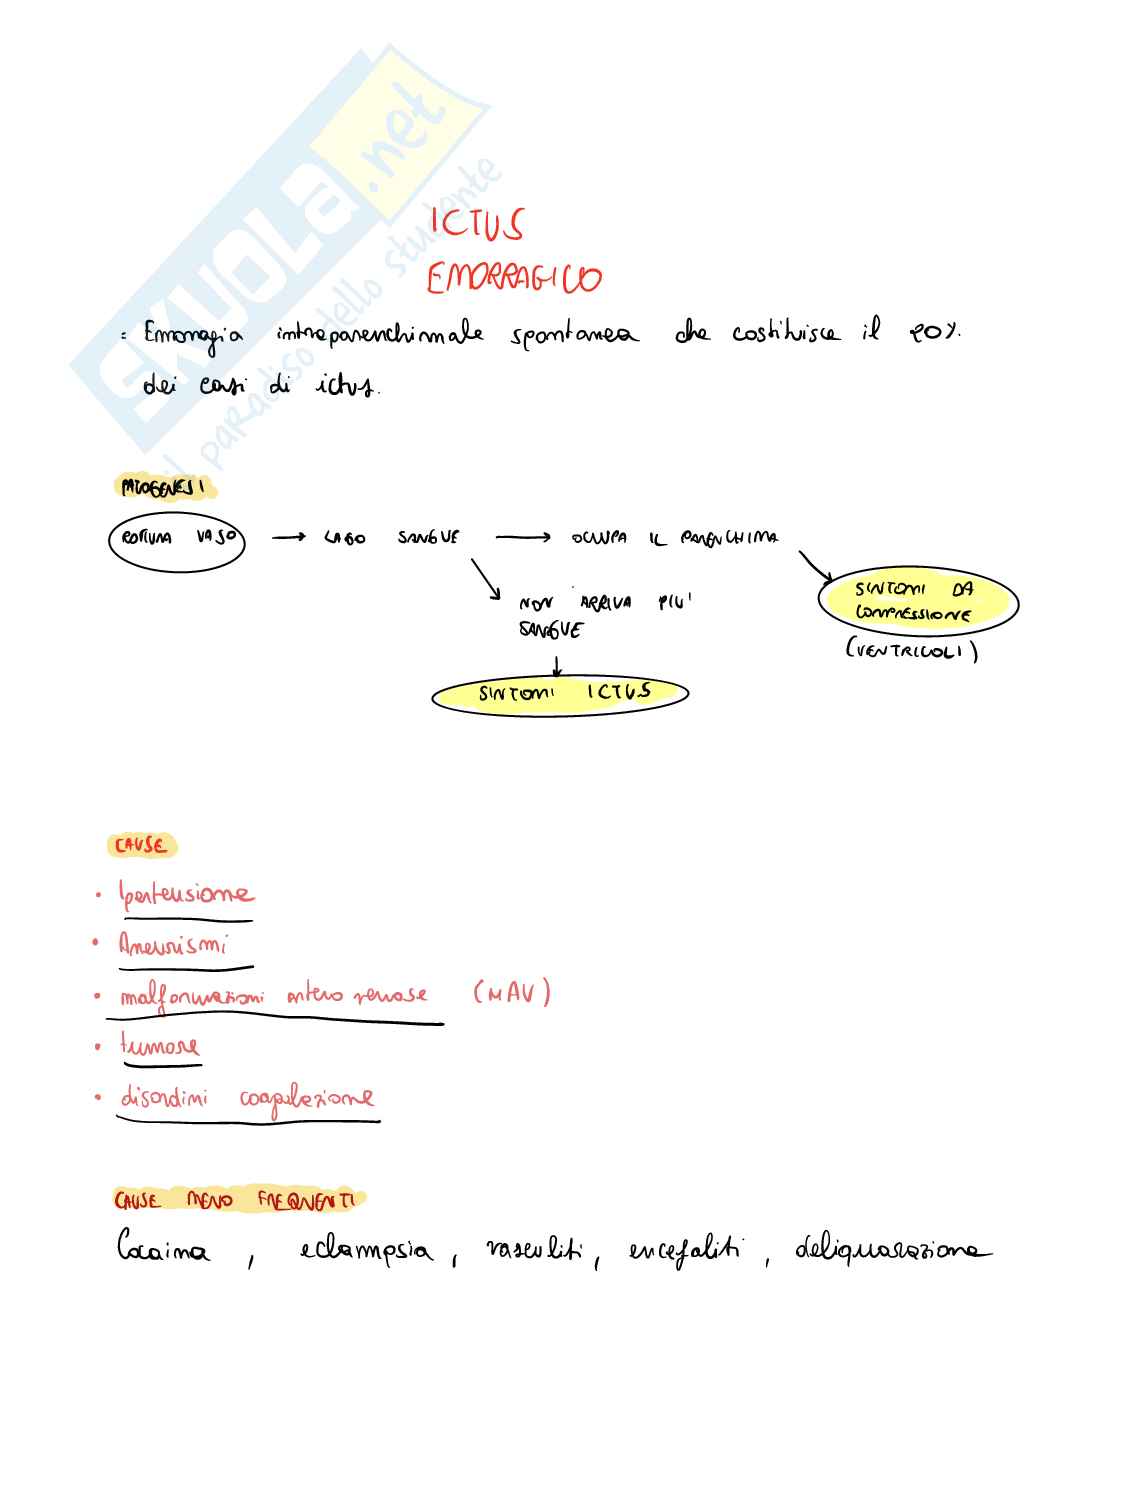 SKUOLA.net
il paradiso dello studente
ICTUS
EMORRAGICO
= Emorragia intraparenchimale spontanea che costituisce il 20%
dei casi di ictus.
PATOGENESI
ROTTURA VASO → LAGO SANGUE → OCCUPA IL PARENCHIMA
SINTOMI DA
COMPRESSIONE
(VENTRICOLI)
NON ARRIVA PIU'
SANGUE
SINTOMI ICTUS
CAUSE
• Ipertensione
• Aneurismi
• malformazioni artero venose (MAV)
• tumore
• disordini coagulazione
CAUSE MENO FREQUENTI
Cocaina, eclampsia, vasculiti, encefaliti,